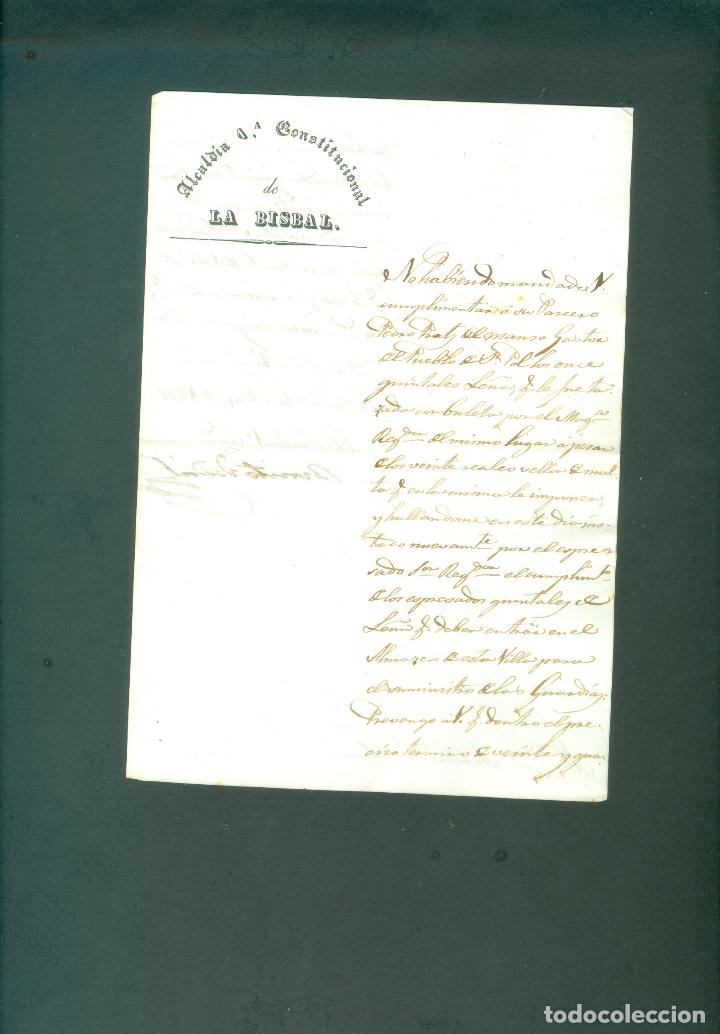 Alcaldia 1.ª Constitucional
de
LA BISBAL.
No habiendo mandado V.
cumplimentar á su Parcero
Pedro Prats del manso
del Pueblo de Sn. Pol los once
quintales Leña, q. le fue ta-
zada con buleta por el
Regdor. del mismo lugar á pesar
de los veinte reales vellon de mul-
ta q. en la misma le imponen,
y hallandome en este dia ins-
tado nuevamte. por el espre-
sado Sor. Regdor. el cumplimto.
de los espresados quintales de
Leña q. deben entrar en el
Almazen de esta Villa para
el suministro de las Guardias:
Prevengo á V. q. dentro el pre-
ciso termino de veinte y qua-
todocoleccion.net